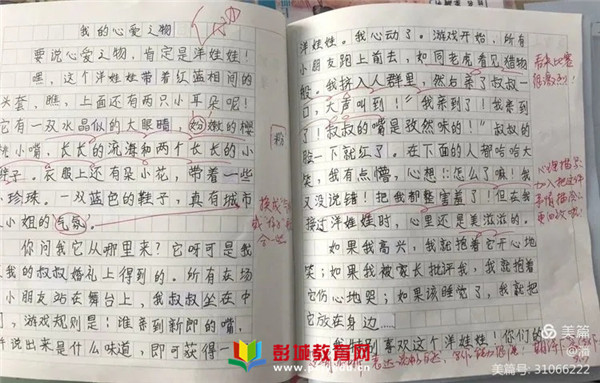 我的心爱之物
要说心爱之物，肯定是洋娃娃！
嘿，这个洋娃娃带着红蓝相间的
头套，瞧，上面还有两只小耳朵呢！
它有一双水晶似的大眼睛，粉嫩的樱
桃小嘴，长长的流海和两个长长的小
辫子。衣服上还有朵小花，带着一些
小珍珠。一双蓝色的鞋子，真有城市
小姐的气氛。
你问我它从哪里来？它呀可是我
从我的叔叔婚礼上得到的。所有在场
小朋友站在舞台上，我叔叔坐在中
间，游戏规则是：谁亲到新郎的嘴，
并说出来是什么味道，即可获得一
粉
洋娃娃。我心动了。游戏开始，所有
小朋友跑上前去，如同老虎看见猎物
般。我挤入人群里，然后亲了叔叔一
口，大声叫到！“我亲到了！我亲到
了！叔叔的嘴是孜然味的！”叔叔的
脸一下就红了。在下面的人都哈哈大
笑，我有点懵，心想：怎么了嘛！我
又没说错！把我都整害羞了！但在我
接过洋娃娃时，心里还是美滋滋的。
如果我高兴，我就抱着它开心地
笑；如果我被家长批评我，我就抱着
它伤心地哭；如果该睡觉了，我就把
它放在身边……
我特别喜欢这个洋娃娃！你们的
看来比赛
很激烈！
心理描写
加入把这件
事情描写
更加
彭城教育网
PCEDU
美篇
美篇号：31066222